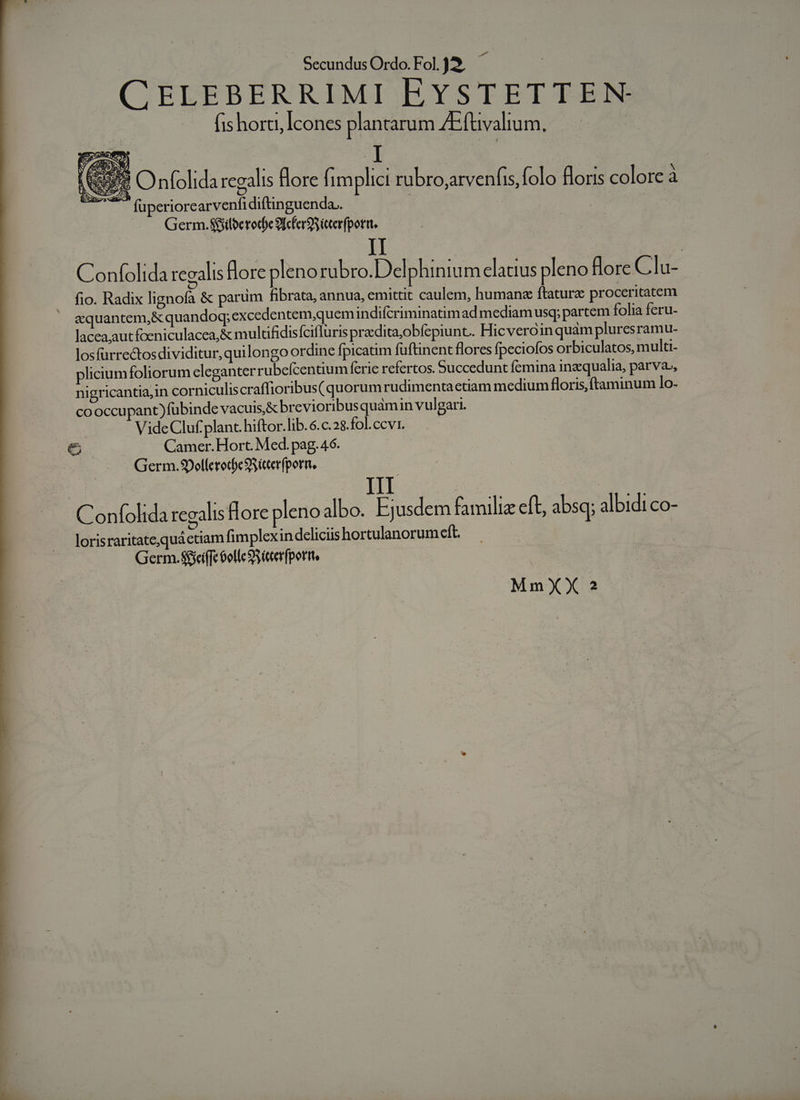 Secundus Ordo. Fol. 12.
CELEBERRIMI EYSTETTEN-
ſis horti, Icones plantarum Æſtivalium.
I
COnſolida regalis flore ſimplici rubro, arvenſis, ſolo floris colore à
ſuperiore arvenſi diſtinguenda.
Germ. Wilde rothe Acker Ritterſporn.
II
Conſolida regalis flore pleno rubro. Delphinium elatius pleno flore Clu-
ſio. Radix lignoſa & parùm fibrata, annua, emittit caulem, humanæ ſtaturæ proceritatem
æquantem, & quandoq; excedentem, quem indiſcriminatim ad mediam usq; partem folia feru-
lacea, aut fœniculacea, & multifidis ſciſſuris prædita, obſepiunt. Hic verò in quàm plures ramu-
los ſurrectos dividitur, qui longo ordine ſpicatim ſuſtinent flores ſpecioſos orbiculatos, multi-
plicium foliorum eleganter rubeſcentium ſerie refertos. Succedunt ſemina inæqualia, parva,
nigricantia, in corniculis craſſioribus (quorum rudimenta etiam medium floris, ſtaminum lo-
co occupant) ſubinde vacuis, & brevioribus quàm in vulgari.
Vide Cluſ. plant. hiſtor. lib. 6. c. 28. fol. ccvi.
Camer. Hort. Med. pag. 46.
Germ. Volle rothe Ritterſporn.
III
Conſolida regalis flore pleno albo. Ejusdem familiæ eſt, absq; albidi co-
loris raritate, quá etiam ſimplex in deliciis hortulanorum eſt.
Germ. Weiſſe volle Ritterſporn.
Mm XX 2